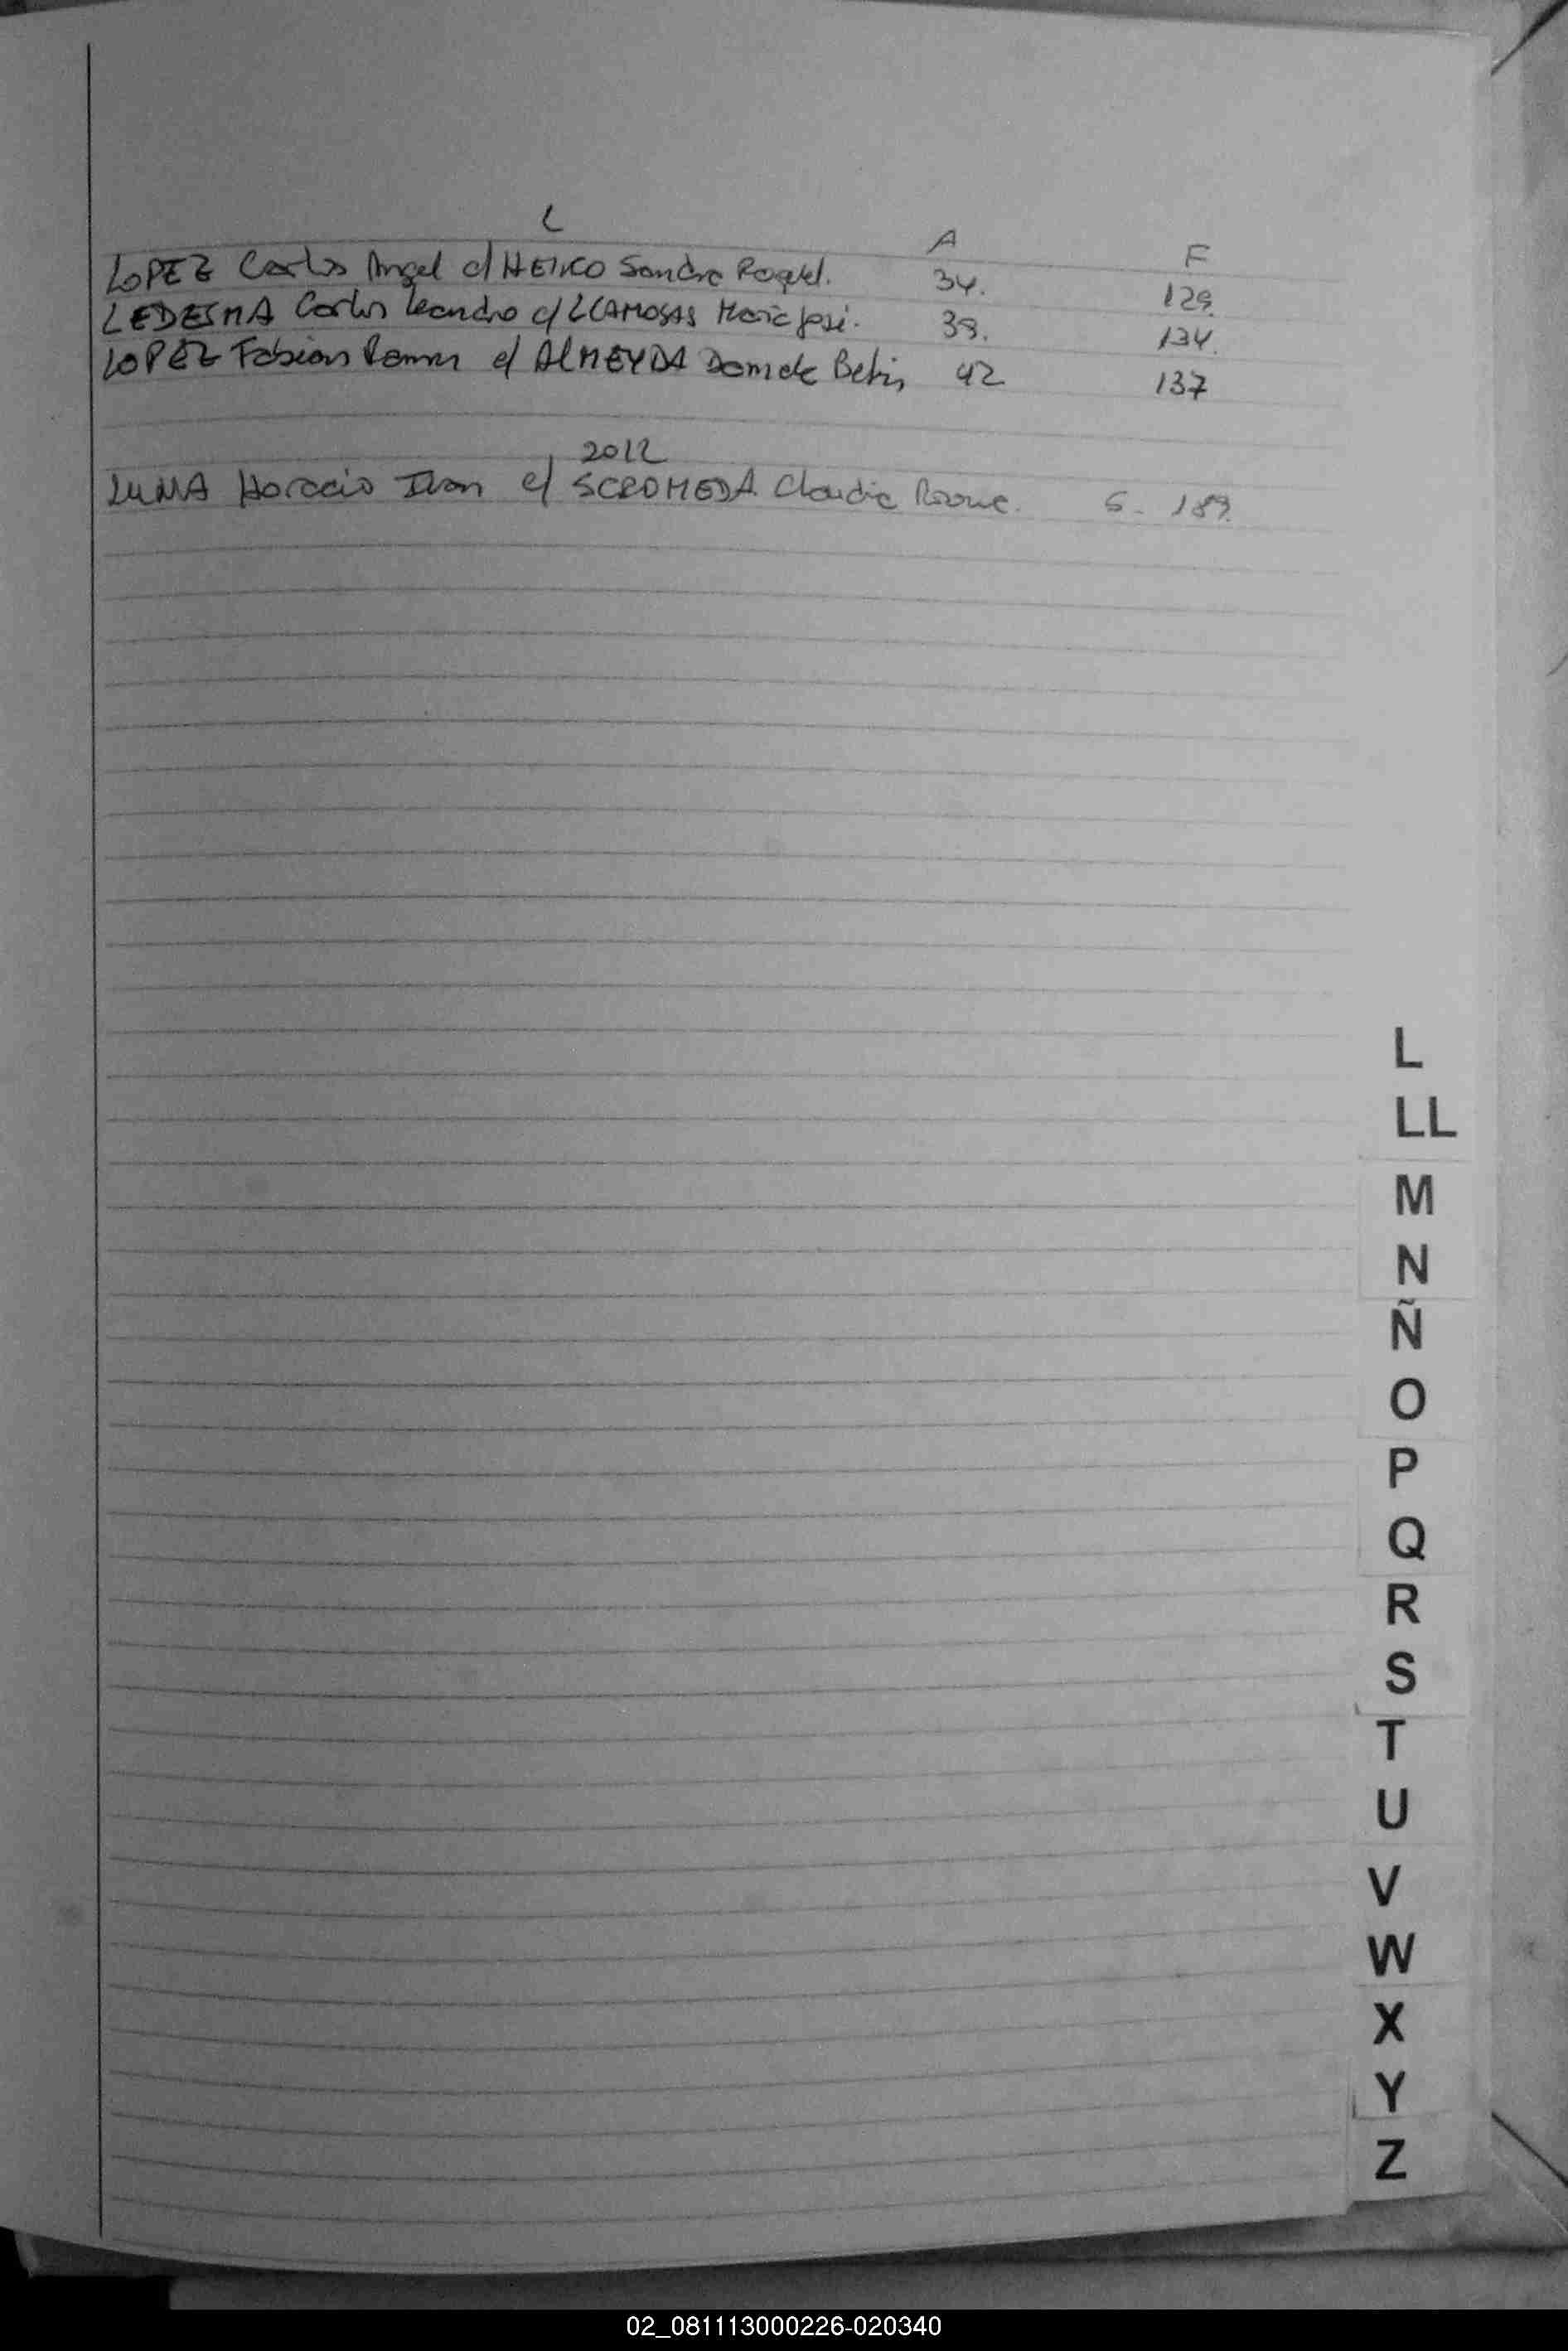 L
A F
LOPEZ Carlos Angel c/ Sandra Raquel. 34. 129.
LEDESMA Carlos Leandro c/ LLAMOSAS Maria José. 39. 134.
LOPEZ Fabian Ramon c/ ALMEYDA Daniela Betin 42 137
2012
LUNA Horacio Ivan c/ SCROMEDA Claudia Roxane. 6. 189.
L
LL
M
N
Ñ
O
P
Q
R
S
T
U
V
W
X
Y
Z
02_081113000226-020340